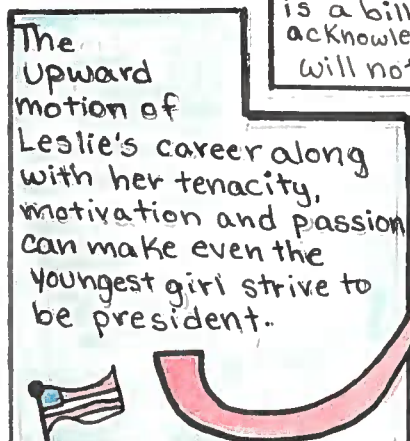 is a bill
acknowle
will not
The
upward
motion of
Leslie's career along
with her tenacity,
motivation and passion
can make even the
youngest girl strive to
be president.